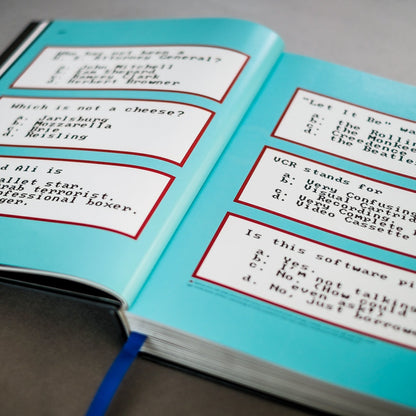 Who has not been a
U. S. Attorney General?
a. John Mitchell
b. Sam Shepard
c. Ramsey Clark
d. Herbert Brower
Which is not a cheese?
a. Jarlsburg
b. Mozzarella
c. Brie
d. Reisling
d Ali is
allet star.
rab terrorist.
ofessional boxer.
ger.
"Let It Be" w
a. The Rollin
b. the Monkee
c. Creedence
d. the Beatle
VCR stands for
a. Very Confusin
b. Visual
c. Recording
d. Very Complete
Video Cassette
Is this software pi
a. Yes.
b. No.
c. No, not talking
(How could
even ask?)
d. No, just borrow